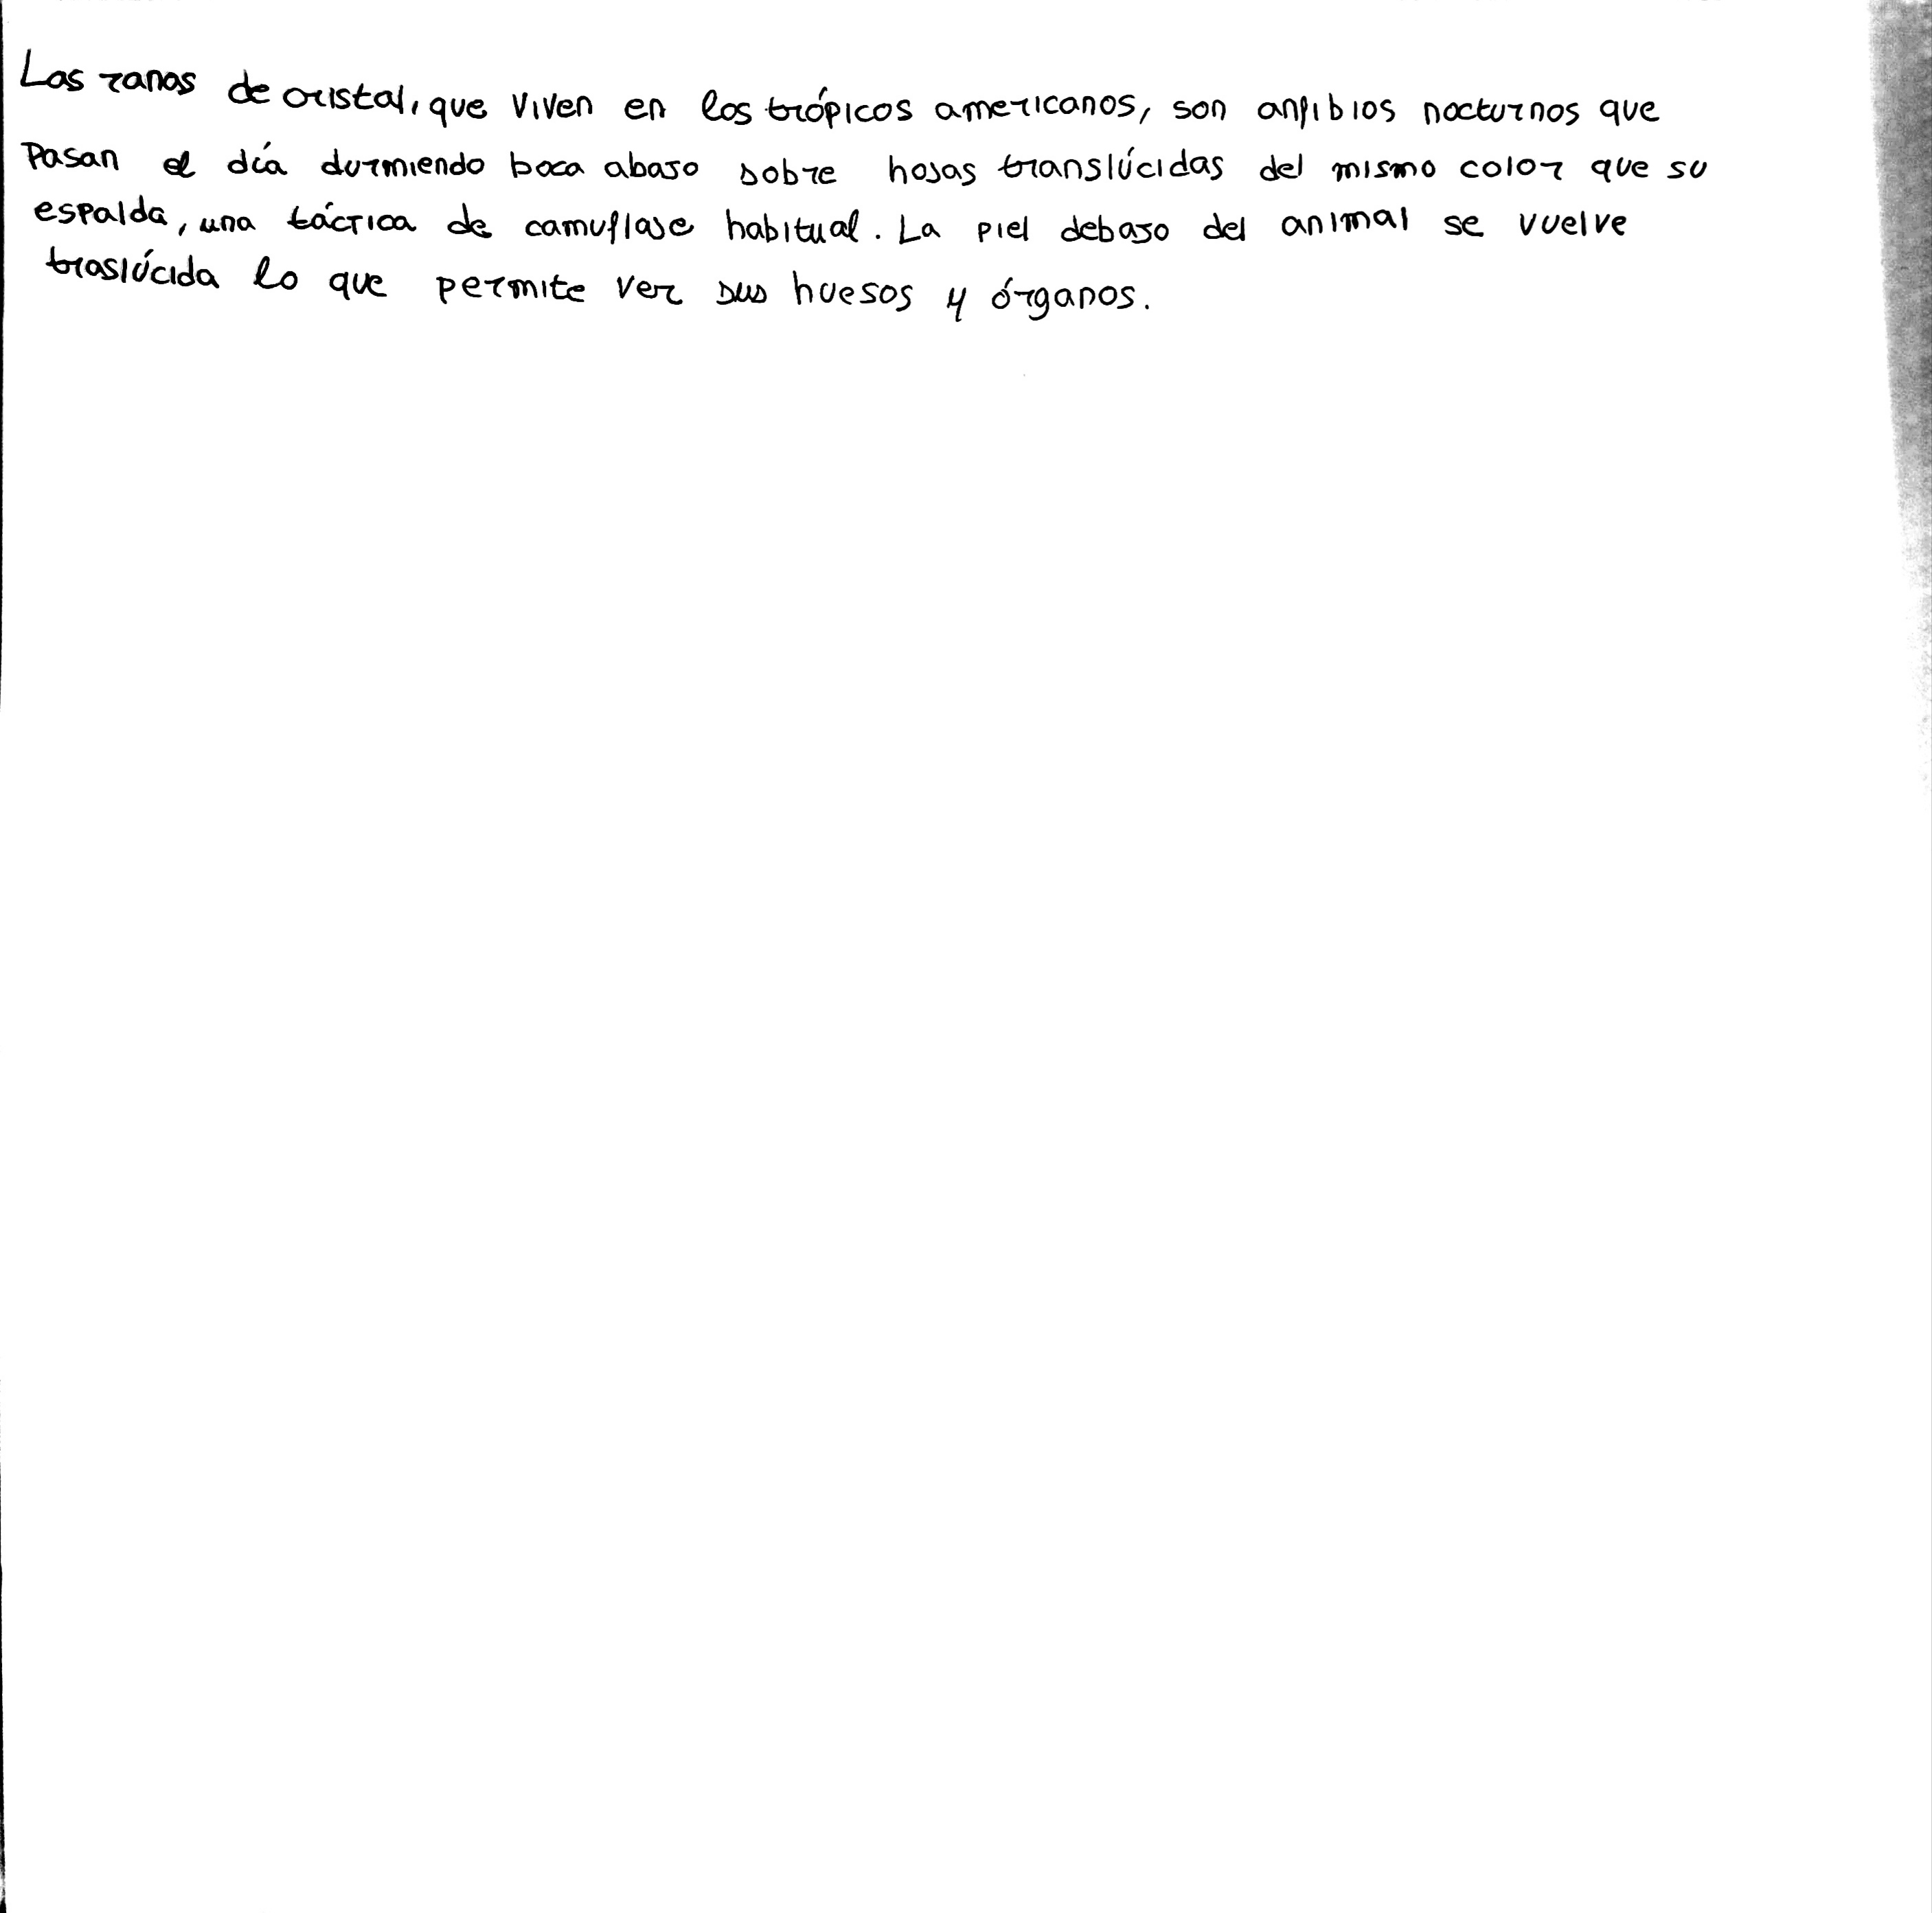 Las ranas de cristal, que viven en los trópicos americanos, son anfibios nocturnos que
Pasan el día durmiendo boca abajo sobre hojas translúcidas del mismo color que su
espalda, una táctica de camuflaje habitual. La piel debajo del animal se vuelve
traslúcida lo que permite ver sus huesos y órganos.